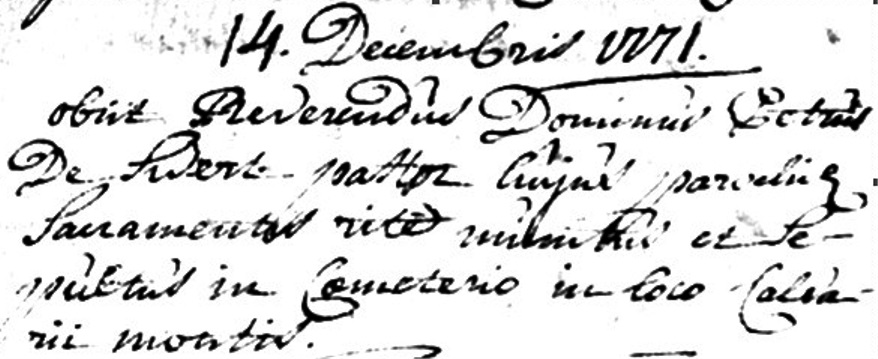 14. Decembris 1771.
obiit Reverendus Dominus Petrus
De pastor hujus parochiæ
Sacramentis rite munitus et Se-
pultus in Cœmeterio in loco Calva-
rii montis.